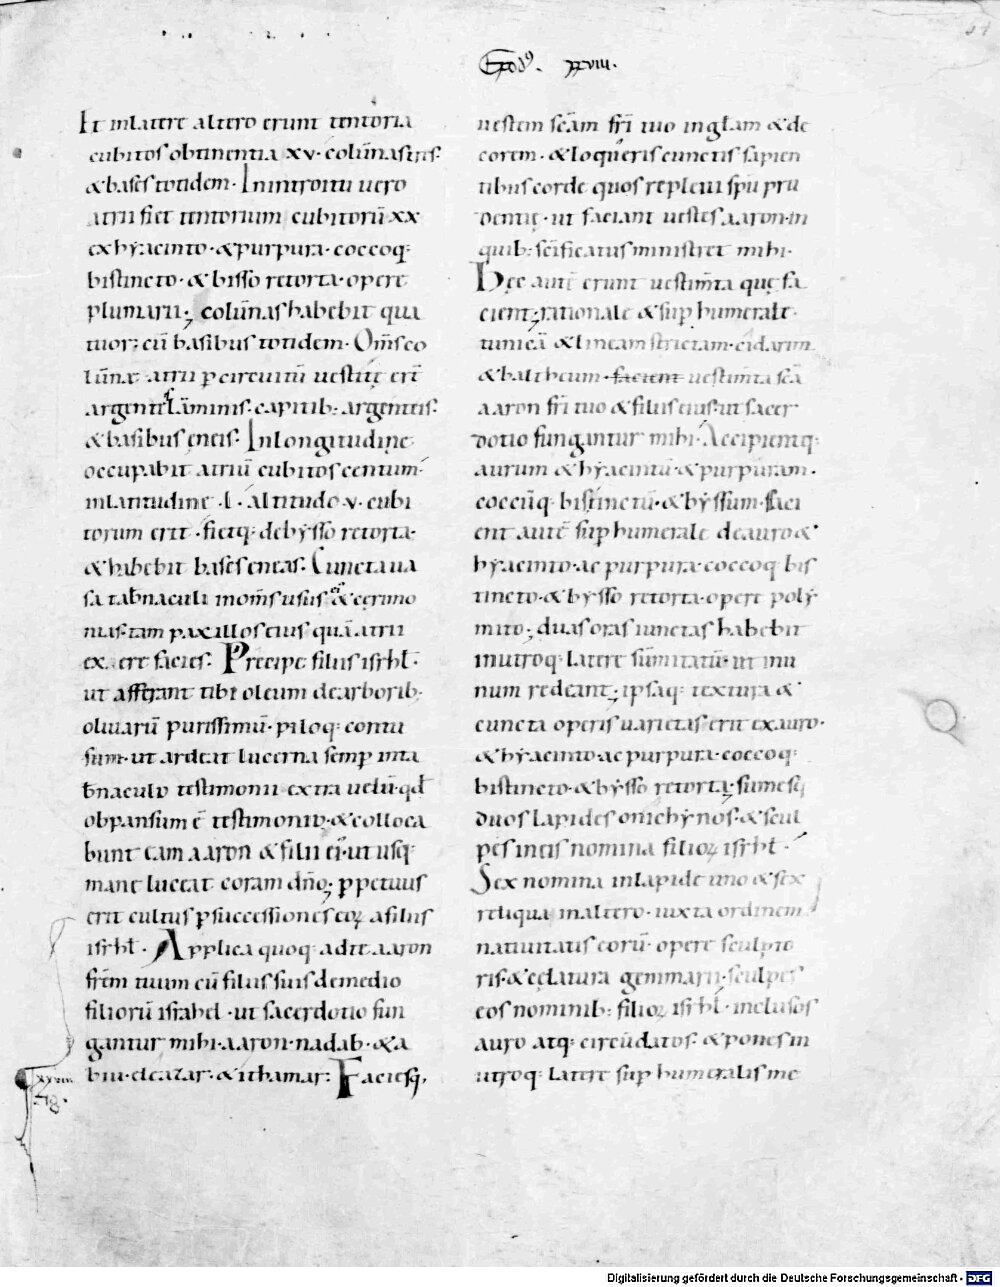 54
Exodꝯ. xxviii.
Et in latere altero erunt tentoria
cubitos obtinentia xv· colūnas tres·
& bases totidem· In introitu uero
atrii fiet tentorium cubitorū xx
ex hyacinto· & purpura· coccoq;
bis tincto· & bisso retorta· opere
plumarii; colūnas habebit qua
tuor; cū basibus totidem· Om̄s co
lūnæ atrii p circuitū uestitę er̄t
argenteis lāminis· capitib; argenteis·
& basibus ęneis· In longitudine
occupabit atriū cubitos centum·
in latitudine ·l· altitudo ·v· cubi
torum erit· fietq; de bysso retorta·
& habebit bases eneas· Cuncta ua
sa tab̄naculi in om̄s usus & cęrimo
nias· tam paxillos eius quā atrii
ex ere facies· Precipe filiis isrhł·
ut afferant tibi oleum de arborib;
oliuarū purissimū· piloq; contu
sum· ut ardeat lucerna semp in ta
b̄naculo testimonii extra uelū· qđ
obpansum ē testimonio· & colloca
bunt eam aaron & filii ei'· ut usq;
mane luceat coram dn̄o; ppetuus
erit cultus p successiones eoꝝ a filiis
isrhł· Applica quoq; ad te aaron
frēm tuum cū filiis suis de medio
filiorū israhel· ut sacerdotio fun
gantur mihi· aaron· nadab· & a
biu· eleazar· & ithamar· Faciesq;
xxviii
uestem scām fr̄i tuo in głam & de
corem· & loqueris cunctis sapien
tibus corde quos repleui spu pru
dentię· ut faciant uestes aaron· in
quib; scīficatus ministret mihi·
Hęc autē erunt uestim̄ta quę fa
cient; rationale & sup humerale·
tunicā & lineam strictam· cidarim
& baltheum· facient uestim̄ta scā
aaron fr̄i tuo & filiis eius· ut sacer
dotio fungantur mihi· Accipientq;
aurum & hyacintū· & purpuram·
coccūq; bis tinctū· & byssum· faci
ent autē sup humerale de auro &
hyacinto· ac purpura· coccoq; bis
tincto· & bysso retorta· opere poly
mito; duas oras iunctas habebit
in utroq; latere sūmitatū· ut in u
num redeant; ipsaq; textura &
cuncta operis uarietas erit ex auro·
& hyacinto· ac purpura· coccoq;
bis tincto· & bysso retorta; sumesq;
duos lapides onichynos· & scul
pes in eis nomina filioꝝ isrhł·
Sex nomina in lapide uno & sex
reliqua in altero· iuxta ordinem
natiuitatis eorū· opere sculpto
ris· & cęlatura gemmarii· sculpes
eos nominib; filioꝝ isrhł· inclusos
auro atq; circūdatos· & pones in
utroq; latere sup humeralis me
Digitalisierung gefördert durch die Deutsche Forschungsgemeinschaft - DFG